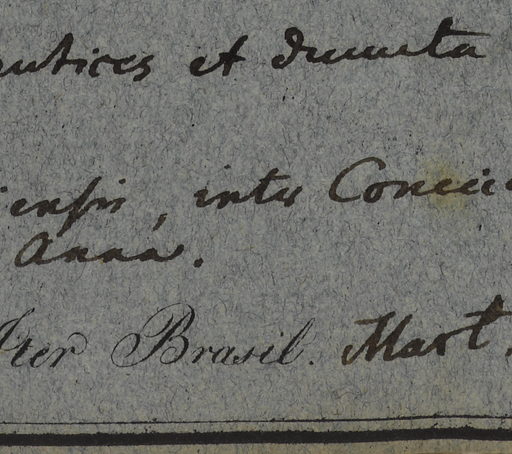 frutices et dumeta
iensis, inter Concei
Anna.
Iter Brasil. Mart.